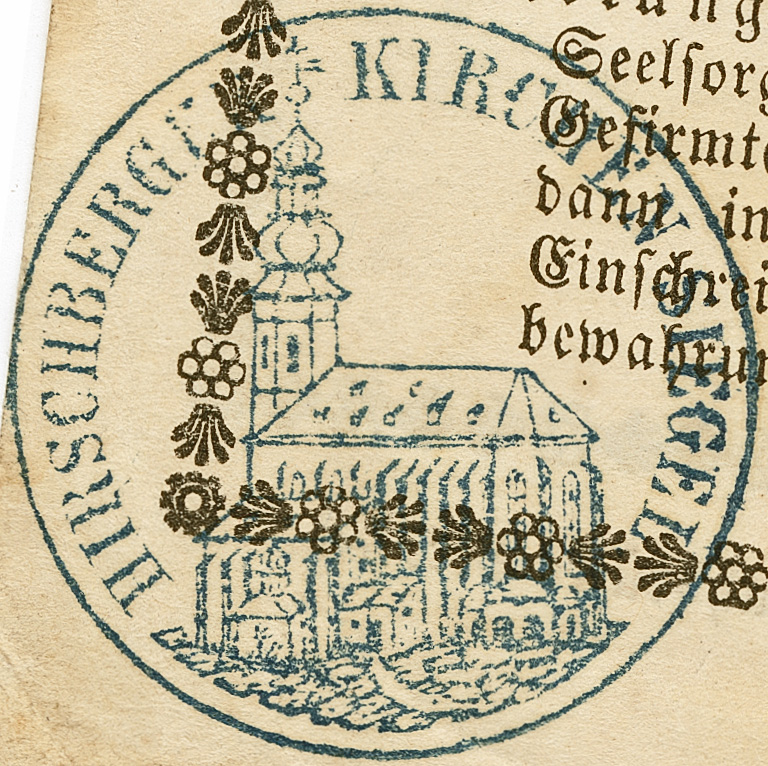 HIRSCHBERGER KIRCHEN SIEGEL
Seelsorg
Gefirmte
dann in
Einschrei
bewahrun